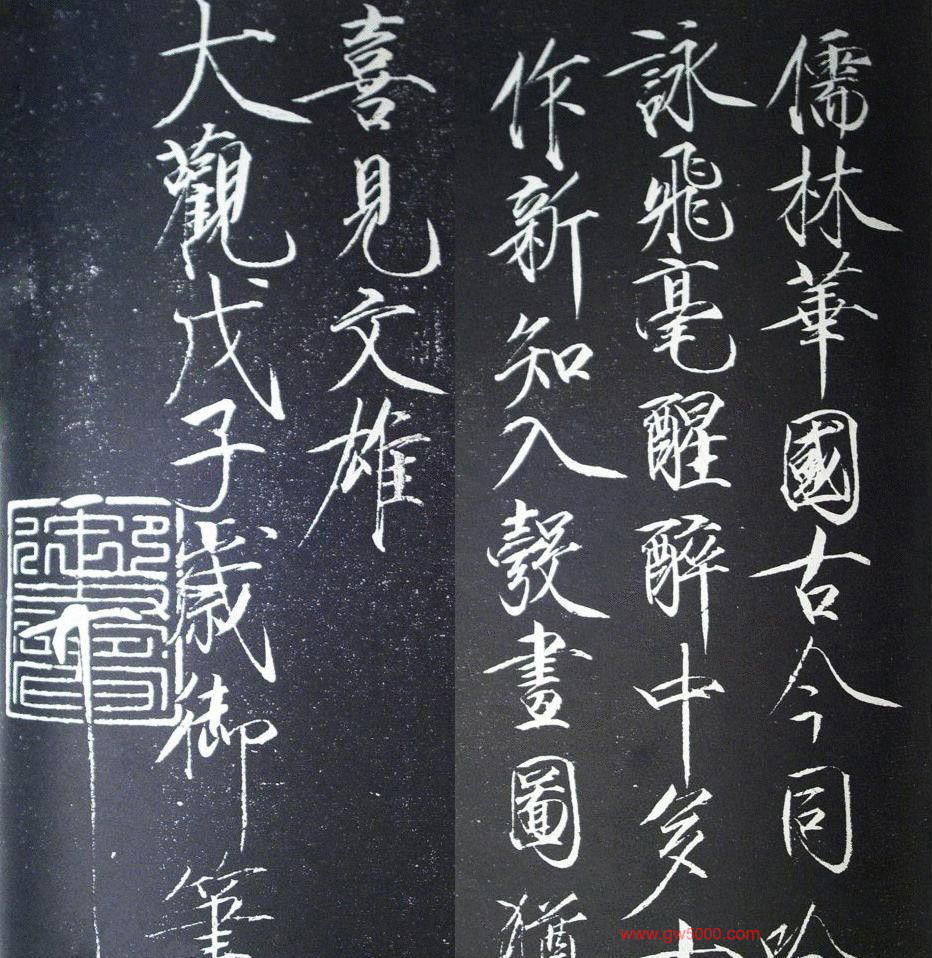 儒林華國古今同吟
詠飛毫醒醉中多
作新知入彀畫圖猶
喜見文雄
大觀戊子歲御筆
www.gw5000.com